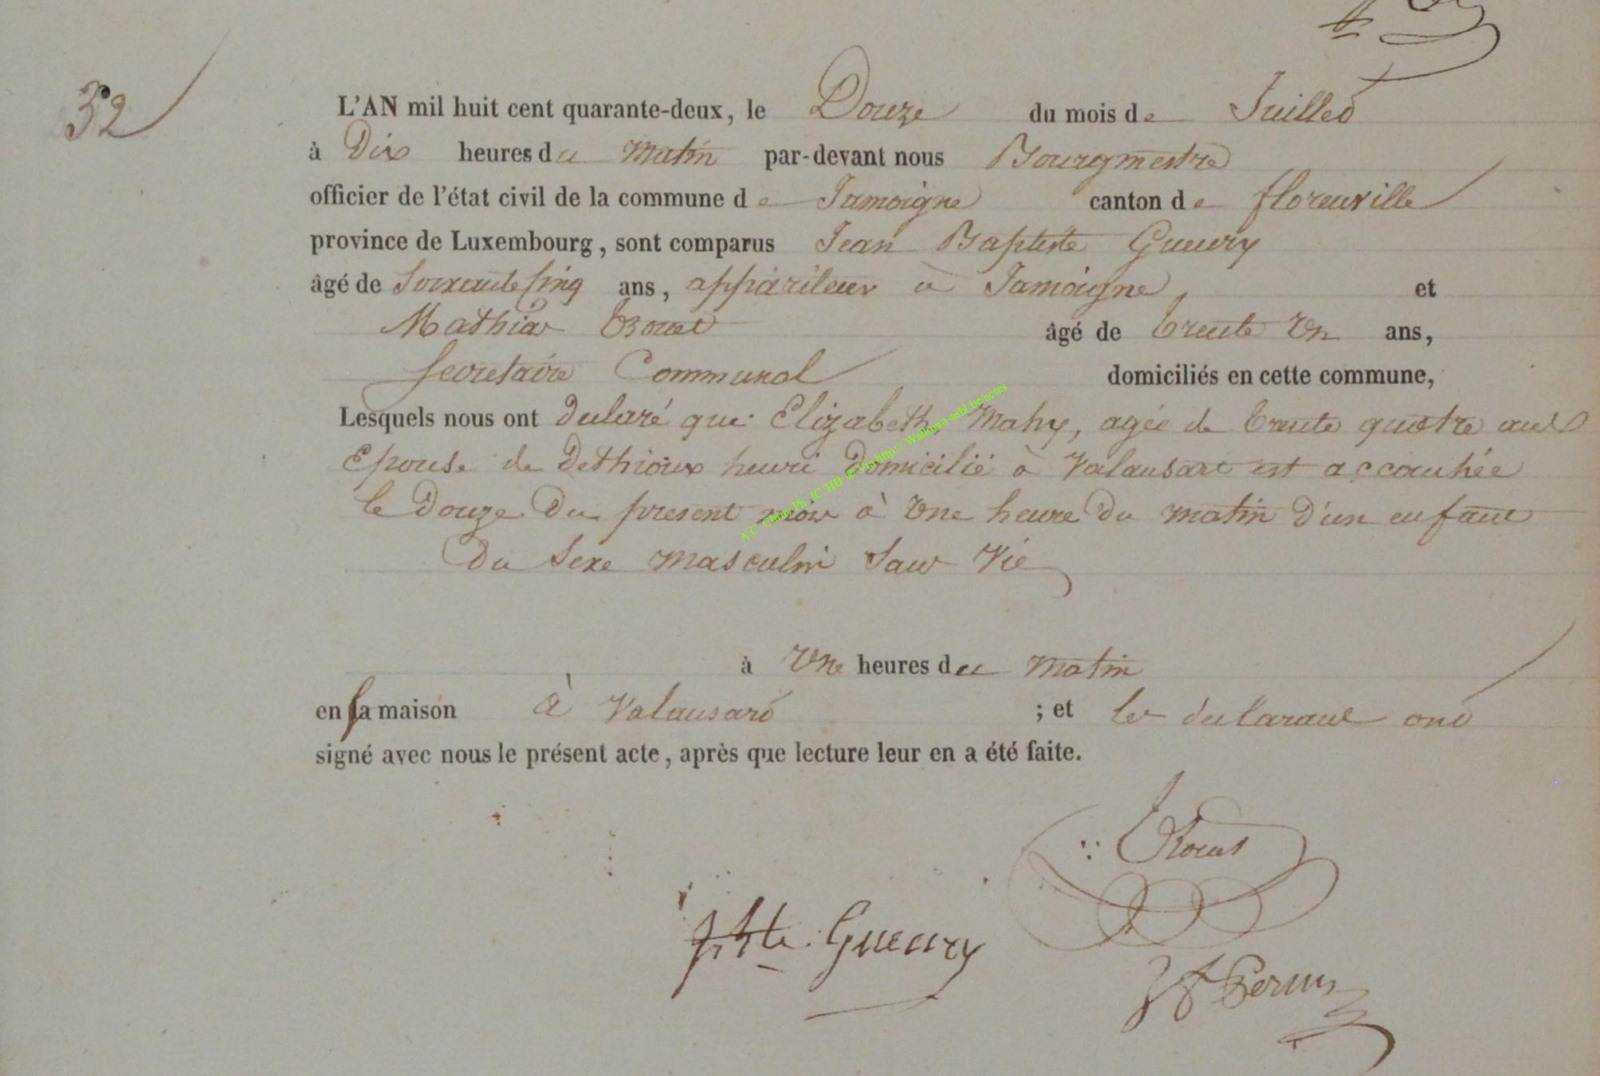 32
L'AN mil huit cent quarante-deux, le Douze du mois de Juillet
à Dix heures du Matin par-devant nous Bourgmestre
officier de l'état civil de la commune de Jamoigne canton de florenville
province de Luxembourg, sont comparus Jean Baptiste Gueury
âgé de Soixante Cinq ans, appariteur à Jamoigne, et
Mathias âgé de trente Un ans,
Secretaire Communal domiciliés en cette commune,
Lesquels nous ont declaré que Elizabeth Mahy, agée de trente quatre ans
Epouse de Dethioux henri Domicilié à Valansart est accouchée
le Douze Du present mois à Une heure Du matin D'un enfant
Du Sexe Masculin Sans Vie
à Une heures du Matin
en sa maison à Valansart ; et les declarant ont
signé avec nous le présent acte, après que lecture leur en a été faite.
Jbte. Gueury